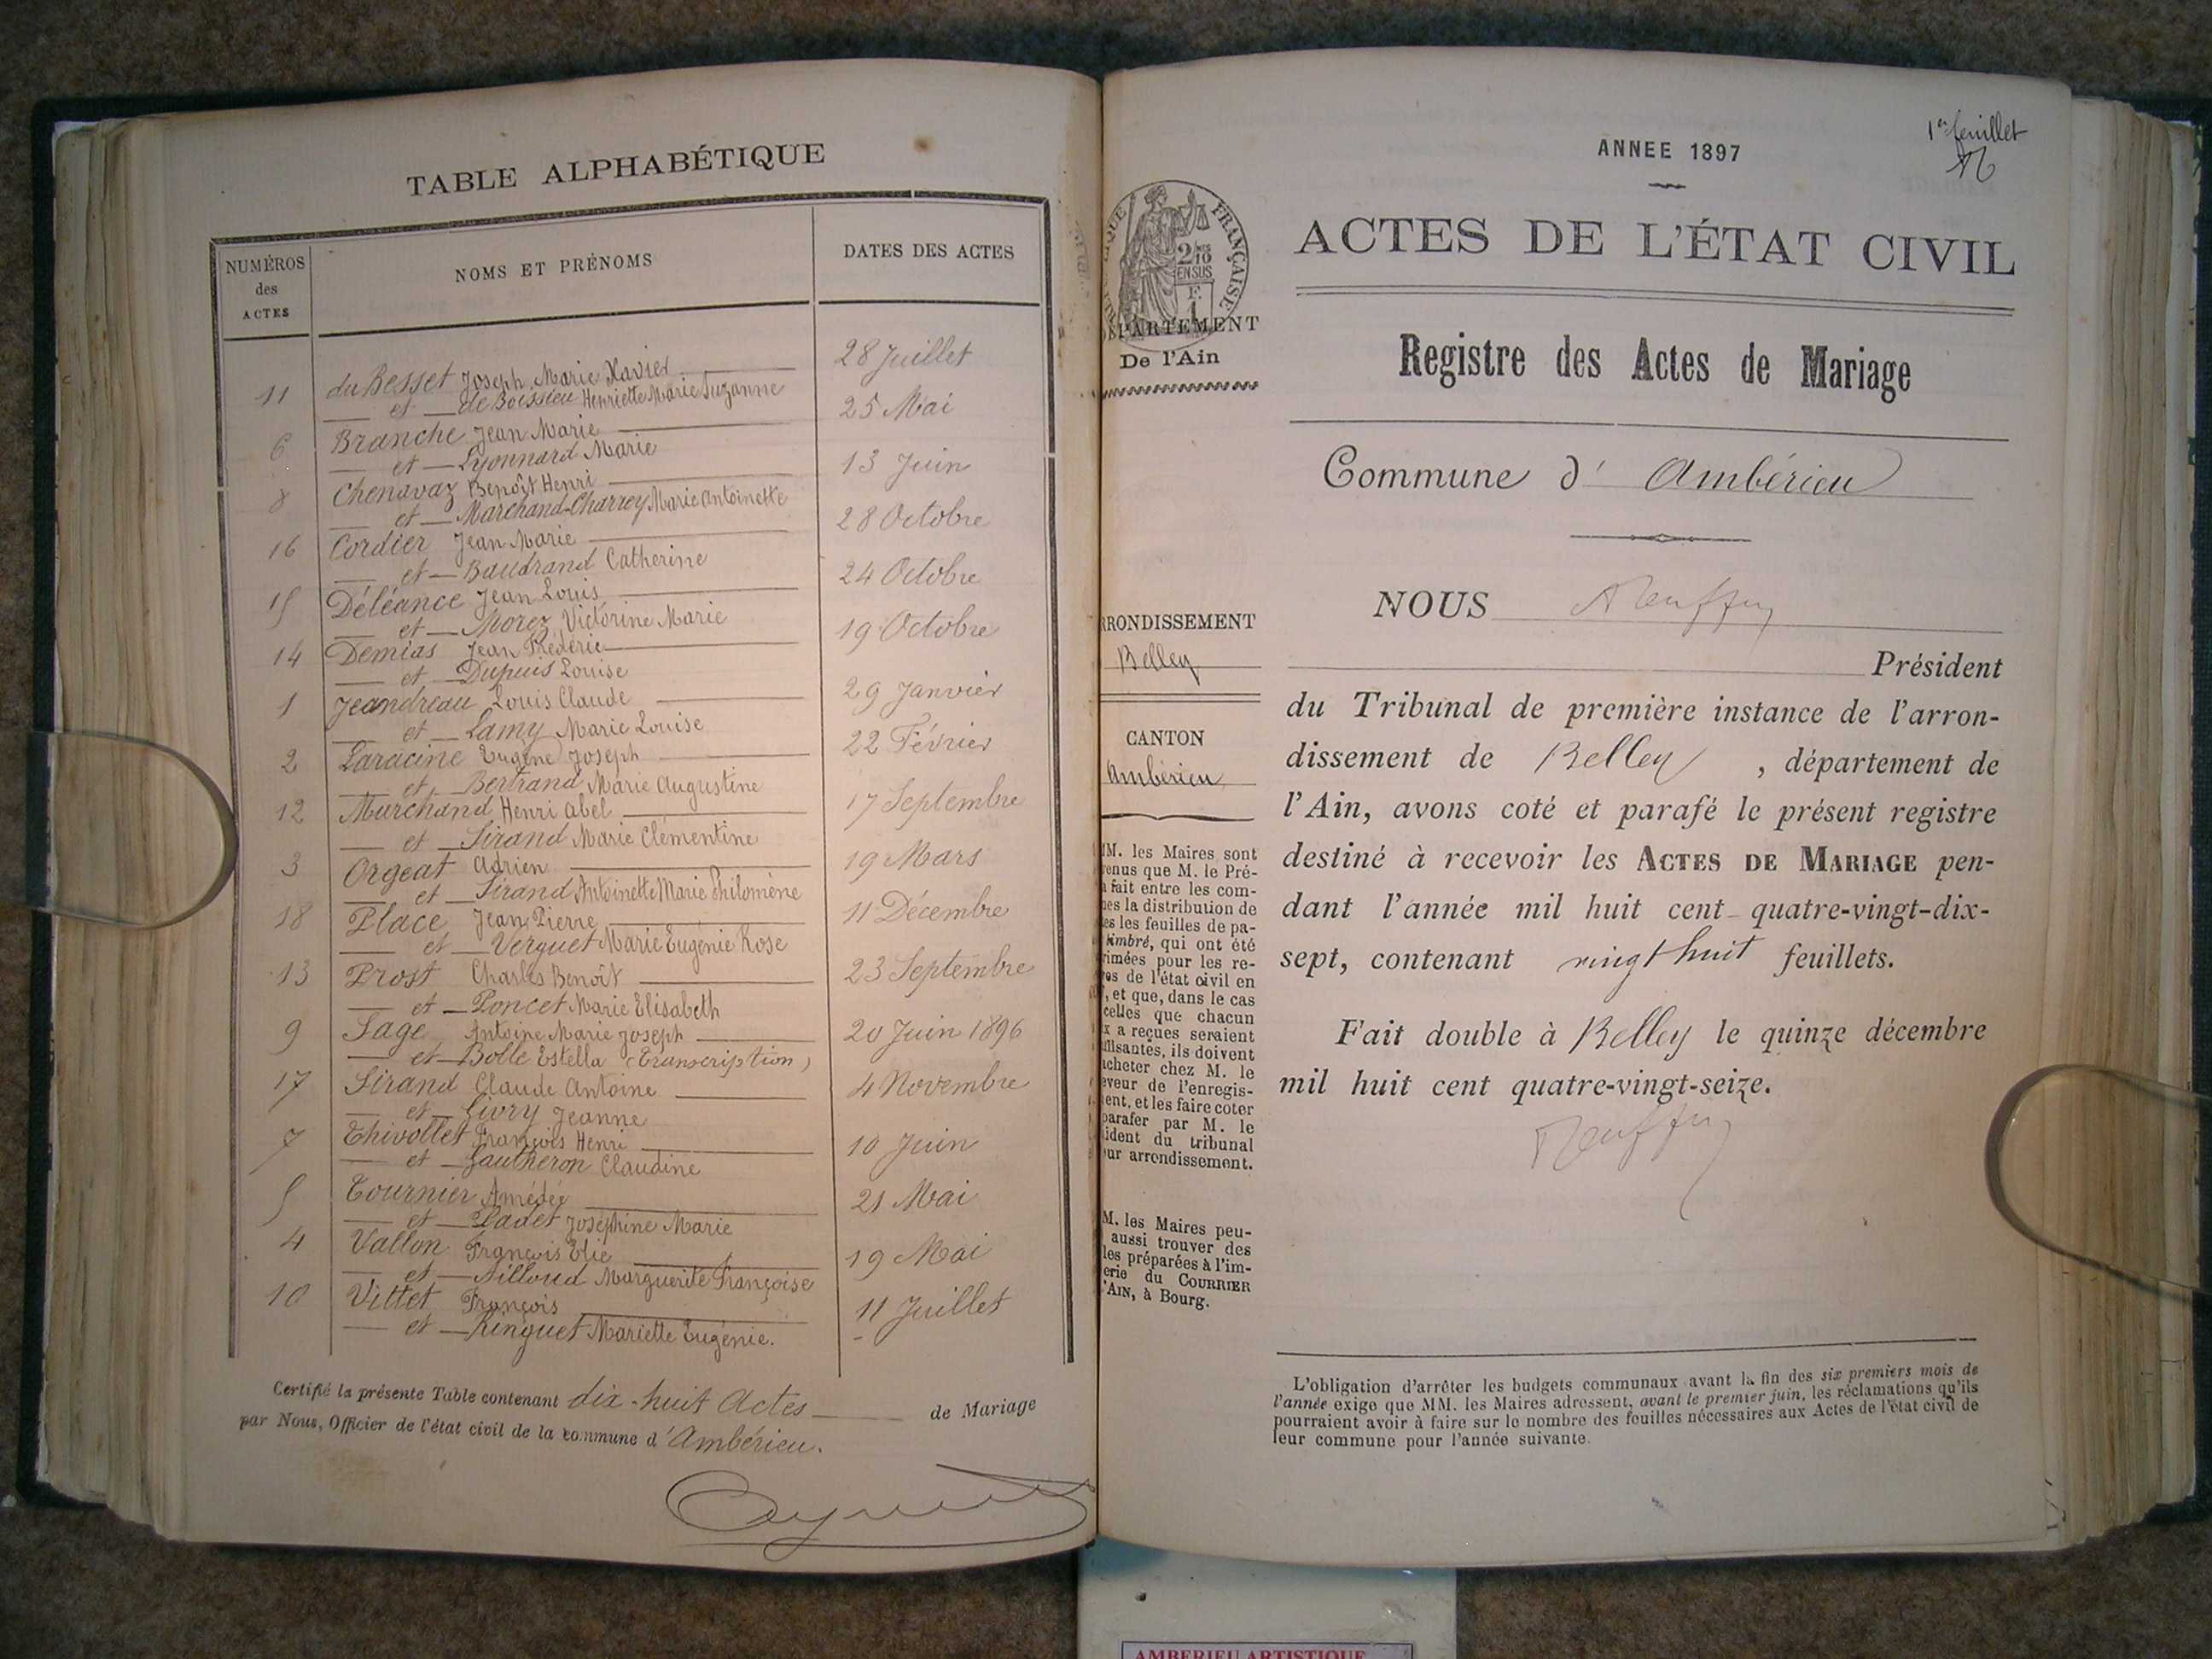 TABLE ALPHABÉTIQUE
NUMÉROS des ACTES
NOMS ET PRÉNOMS
DATES DES ACTES
11 du Besset Joseph Marie Xavier 28 Juillet
et de Boissieu Henriette Marie Suzanne
6 Branche Jean Marie 25 Mai
et Lyonnard Marie
8 Chenavaz Benoît Henri 13 Juin
et Marchand-Charrey Marie Antoinette
16 Cordier Jean Marie 28 Octobre
et Baudrand Catherine
15 Déléance Jean Louis 24 Octobre
et Morez Victorine Marie
14 Demias Jean Frédéric 19 Octobre
et Dupuis Louise
1 Jeandreau Louis Claude 29 Janvier
et Lamy Marie Louise
2 Laracine Eugène Joseph 22 Février
et Bertrand Marie Augustine
12 Marchand Henri Abel 17 Septembre
et Sirand Marie Clémentine
3 Orgeat Adrien 19 Mars
et Sirand Antoinette Marie Philomène
18 Place Jean Pierre 11 Décembre
et Verguet Marie Eugénie Rose
13 Prost Charles Benoît 23 Septembre
et Poncet Marie Elisabeth
9 Sage Antoine Marie Joseph 20 Juin 1896
et Bolle Estella (Transcription)
17 Sirand Claude Antoine 4 Novembre
et Givry Jeanne
7 Thivollet François Henri 10 Juin
et Gautheron Claudine
5 Tournier Amédée 21 Mai
et Ladet Joséphine Marie
4 Vallon François Elie 19 Mai
et Nilloud Marguerite Françoise
10 Vittet François 11 Juillet
et Ringuet Mariette Eugénie.
Certifié la présente Table contenant dix-huit Actes de Mariage
par Nous, Officier de l'état civil de la commune d'Ambérieu.
1er feuillet
ANNEE 1897
ACTES DE L'ÉTAT CIVIL
Registre des Actes de Mariage
Commune d' Ambérieu
NOUS
Président
du Tribunal de première instance de l'arron-
dissement de Belley, département de
l'Ain, avons coté et parafé le présent registre
destiné à recevoir les ACTES DE MARIAGE pen-
dant l'année mil huit cent quatre-vingt-dix-
sept, contenant vingt huit feuillets.
Fait double à Belley le quinze décembre
mil huit cent quatre-vingt-seize.
L'obligation d'arrêter les budgets communaux avant la fin des six premiers mois de
l'année exige que MM. les Maires adressent, avant le premier juin, les réclamations qu'ils
pourraient avoir à faire sur le nombre des feuilles nécessaires aux Actes de l'état civil de
leur commune pour l'année suivante.
FRANÇAISE
2/10
EN SUS
F. 1
PARTEMENT
De l'Ain
RRONDISSEMENT
Belley
CANTON
Ambérieu
M. les Maires sont
enus que M. le Pré-
fait entre les com-
es la distribution de
es les feuilles de pa-
timbré, qui ont été
rimées pour les re-
es de l'état civil en
, et que, dans le cas
celles que chacun
x a reçues seraient
ffisantes, ils doivent
acheter chez M. le
eveur de l'enregis-
ent, et les faire coter
parafer par M. le
ident du tribunal
ur arrondissement.
M. les Maires peu-
aussi trouver des
les préparées à l'im-
erie du COURRIER
'AIN, à Bourg.
AMBERIEU ARTISTIQUE